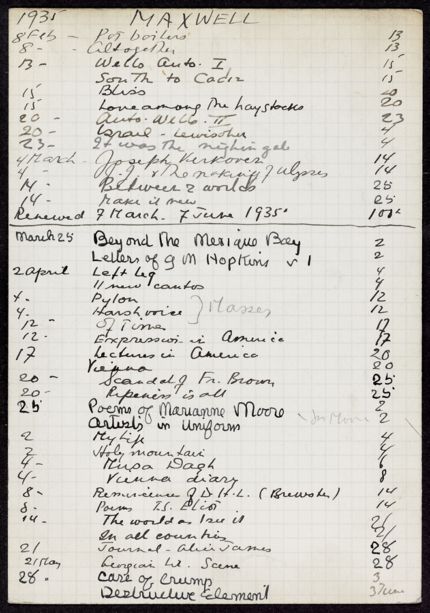 1935 MAXWELL
8 Feb - Pot boilers 13
8 - - Altogether 13
13 - Wells Auto. I 15
South to Cadiz 15
15 Bliss 20
15 Love among the haystacks 20
20 - Auto. Wells. II 23
20 - Israel - Lewisohn 4
23 - It was the nightingale 4
4 March - Joseph Kerkoven 14
4 - J.J. & The making of Ulysses 14
14 - Between 2 worlds 25
14 - Make it new 25
Renewed 7 March - 7 June 1935.
March 25 Beyond The Mexique Bay 2
Letters of G M Hopkins v 1 2
2 April Left Leg 4
11 new cantos 4
4. Pylon 12
4. Harsh voice } Masses 12
12 - Of Time 17
12. Expression in America 17
17 Lectures in America 20
Vienna 20
20 - Scandal of Fr. Brown 25
20 - Ripeness is all 25
25 Poems of Marianne Moore 2
Artists in Uniform 2
2 My life 4
2 Holy mountain 4
4 - Musa Dagh 6
4 - Vienna diary 8
8 - Reminiscences of D.H.L. (Brewster) 14
8 - Poems T.S. Eliot 14
14 - The world as I see it 21
In all countries 21
21 Journal - Alice James 28
21 May Georgian Lit. Scene 28
28. Care of Grump 3
Destructive Element 3 June